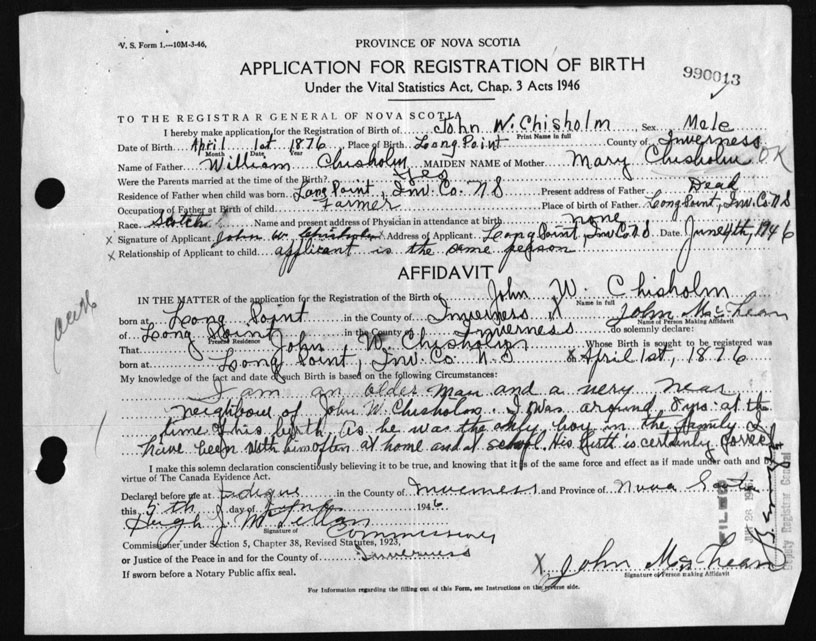 V. S. Form 1.—10M-3-46.
PROVINCE OF NOVA SCOTIA
APPLICATION FOR REGISTRATION OF BIRTH
990013
Under the Vital Statistics Act, Chap. 3 Acts 1946
TO THE REGISTRAR GENERAL OF NOVA SCOTIA
I hereby make application for the Registration of Birth of John W. Chisholm Sex Male
Print Name in full
Date of Birth April 1st 1876 Place of Birth Long Point County of Inverness
Month Date Year
Name of Father William Chisholm MAIDEN NAME of Mother Mary Chisholm OK
Were the Parents married at the time of the Birth? Yes
Residence of Father when child was born Long Point, Inv. Co. N S Present address of Father Dead
Occupation of Father at Birth of child Farmer Place of birth of Father Long Point, Inv. Co. N S
Race Scotch Name and present address of Physician in attendance at birth none
x Signature of Applicant John W. Chisholm x Address of Applicant Long Point, Inv Co. N S Date June 4th, 1946
x Relationship of Applicant to child applicant is the same person
AFFIDAVIT
IN THE MATTER of the application for the Registration of Birth of John W. Chisholm
Name in full
born at Long Point in the County of Inverness X John MacLean
Name of Person Making Affidavit
of Long Point in the County of Inverness do solemnly declare:
Present Residence
That John W. Chisholm Whose Birth is sought to be registered was
born at Long Point, Inv. Co. N. S. April 1st, 1876
My knowledge of the fact and date of such Birth is based on the following Circumstances:
I am an older man and a very near
neighbour of John W. Chisholm. I was around 8 yrs. at the
time of his birth as he was the only boy in the family I
have been with him often at home and at school. His birth is certainly
I make this solemn declaration conscientiously believing it to be true, and knowing that it is of the same force and effect as if made under oath and
virtue of The Canada Evidence Act.
Declared before me at in the County of Inverness and Province of Nova Scotia
this 5th day of June 1946
Hugh J. McLellan
Signature of
Commissioner
Commissioner under Section 5, Chapter 38, Revised Statutes, 1923,
or Justice of the Peace in and for the County of Inverness
If sworn before a Notary Public affix seal.
X John MacLean
Signature of Person making Affidavit
For Information regarding the filling out of this Form, see Instructions on the reverse side.
FILED
Deputy Registrar General